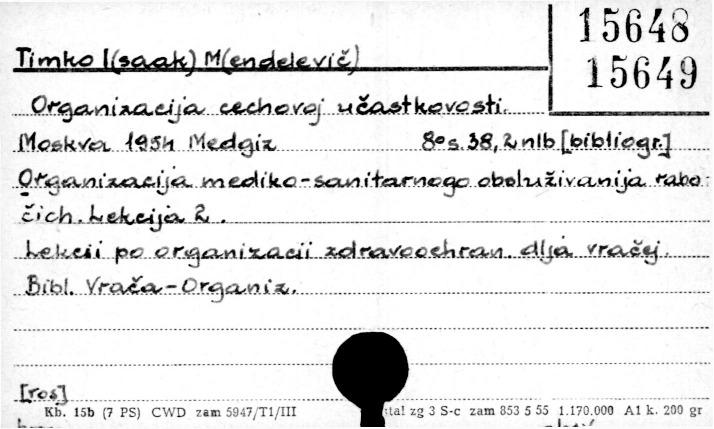 15648
15649
Timko I(saak) M(endelevič)
Organizacija cechovoj učastkovosti.
Moskva 1954 Medgiz 8° s. 38, 2 nlb [bibliogr.]
Organizacija mediko-sanitarnogo obsłuživanija rabo-
čich. Lekcija 2.
Lekcii po organizacii zdravoochran. dlja vračej.
Bibl. Vrača-Organiz.
[ros]
Kb. 15b (7 PS) CWD zam 5947/T1/III tal zg 3 S-c zam 853 5 55 1.170.000 A1 k. 200 gr